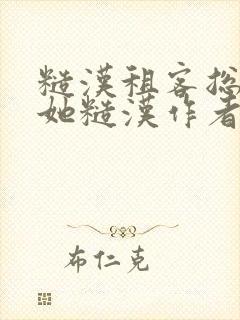 糙漢租客捴
她糙漢作者
布仁克